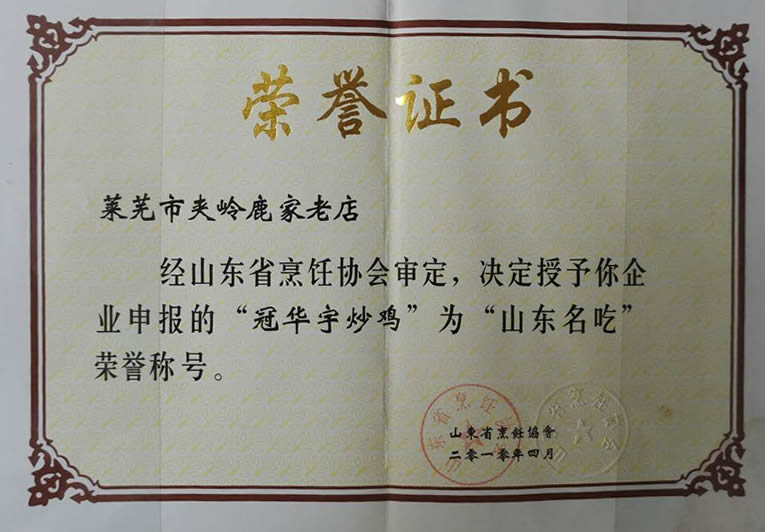 荣誉证书
莱芜市夹岭鹿家老店
经山东省烹饪协会审定，决定授予你企
业申报的“冠华宇炒鸡”为“山东名吃”
荣誉称号。
山東省烹飪協會
二零一零年四月